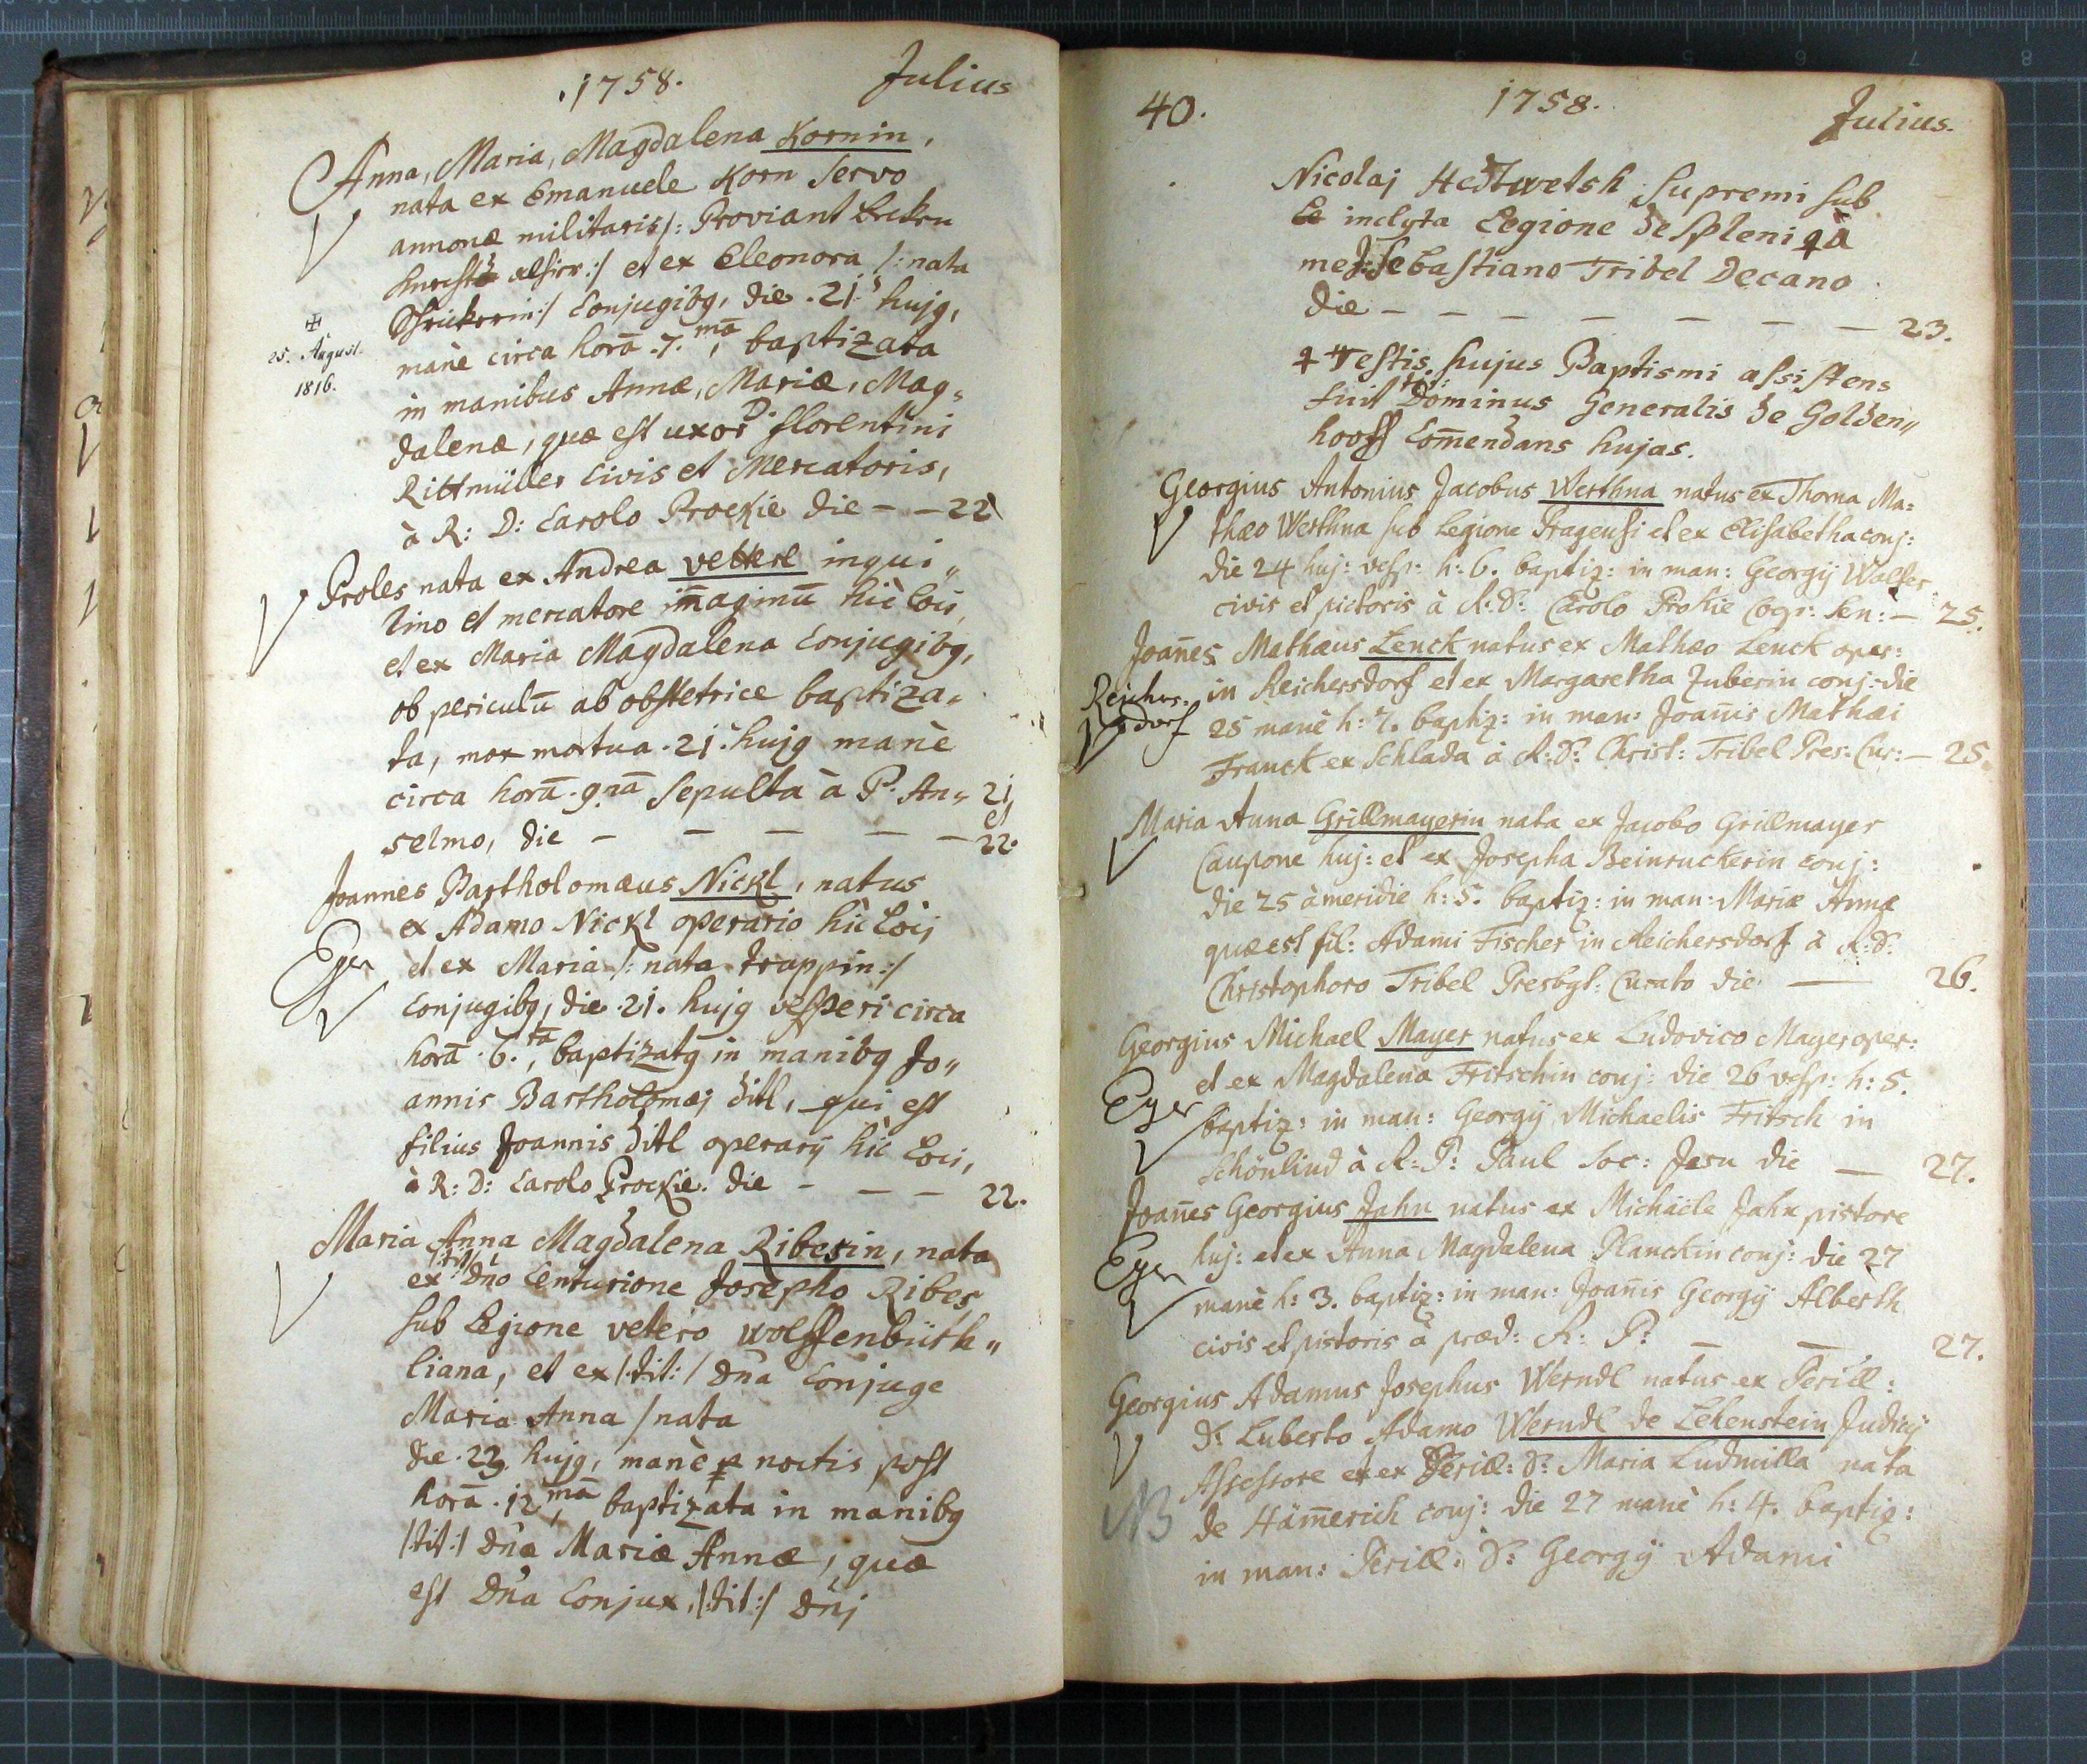 1758. Julius
Anna, Maria, Magdalena Kornin,
nata ex Emanuele Korn Servo
annonæ militaris /: Proviant
et ex Eleonora /: nata
:/ Conjugibg, die .21. hujg,
manè circa horā .7.mā, baptizata
in manibus Annæ, Mariæ, Mag„
dalenæ, quæ est uxor D. florentini
Rittmüller Civis et Mercatoris,
à R: D: Carolo Prockie die – – 22
25. August.
1816.
Proles nata ex Andrea vetterl inqui„
lino et mercatore im̄aginū hic Loci,
et ex Maria Magdalena Conjugibg,
ob periculū ab obstetrice baptiza„
ta, mox mortua .21. hujg manè
circa horā .9.nā Sepulta à P. An„ 21
et
selmo, die – – – – – 22.
Joannes Bartholomæus Nickl, natus
ex Adamo Nickl operario hic Loci
Eger
et ex Maria /: nata trappin :/
Conjugibg, die .21. hujg vesperi circa
horā .6.tā, baptizatg in manibg Jo„
annis Bartholomæj ditl, qui est
filius Joannis ditl operarij hic Loci,
à R: D: Carolo Prockie. die – – – 22.
Maria Anna Magdalena Riberin, nata
ex /:tit:/ Dn̄o Centurione Josepho Riber
Sub Legione vetero wolffenbüth„
liana, et ex /:tit:/ Dn̄a Conjuge
Maria Anna /nata
die .23. hujg, manè noctis post
horā .12.mā, baptizata in manibg
/:tit:/ Dn̄a Mariæ Annæ, quæ
est Dn̄a Conjux, /:tit:/ Dn̄j
40. 1758. Julius.
Nicolaj Hedtwetsh Supremi sub
inclyta Legione de Spleni à
me J: Sebastiano Tribel Decano
die – – – – – – – 23.
testis hujus Baptismi assistens
fuit Dominus Generalis de Golden„
hooff Com̄endans hujas.
Georgius Antonius Jacobus Werthna natus ex Thoma Ma=
thæo Werthna sub Legione Pragensi et ex Elisabetha conj:
die 24 huj: vesp: h: 6. baptiz: in man: Georgij Walser
civis et pictoris à R: D: Carolo Prokie Coop: Sen: – 25.
Joan̄es Mathæus Lenck natus ex Mathæo Lenck oper:
in Reichersdorf et ex Margaretha Zuberin conj: die
Reichers.
dorf
25 manè h: 7. baptiz: in man: Joan̄is Mathæi
Franck ex Schlada à R: D: Christ: Tribel Pres: Cur: – 25.
Maria Anna Grillmayerin nata ex Jacobo Grillmayer
Caupone huj: et ex Josepha Beinruckerin conj:
die 25 à meridie h: 5. baptiz: in man: Mariæ Annæ
quæ est fil: Adami Fischer in Reichersdorf à R: D:
Christophoro Tribel Presbyt: Curato die — 26.
Georgius Michael Mayer natus ex Ludovico Mayer oper:
et ex Magdalena Fritschin conj: die 26 vesp: h: 5.
Eger
baptiz: in man: Georgij Michaelis Fritsch in
Schönlind à R: P: Paul Soc: Jesu die — 27.
Joan̄es Georgius Jahn natus ex Michaele Jahn pistore
Eger
huj: et ex Anna Magdalena Planckin conj: die 27
manè h: 3. baptiz: in man: Joan̄is Georgij Alberth
civis et pistoris à præd: R: P: — — 27.
Georgius Adamus Josephus Werndl natus ex Perill:
D: Luberto Adamo Werndl de Lehenstein Judicij
Assessore et ex Perill: D: Maria Ludmilla nata
NB
de Häm̄erich conj: die 27 manè h: 4. baptiz:
in man: Perill: D: Georgij Adami